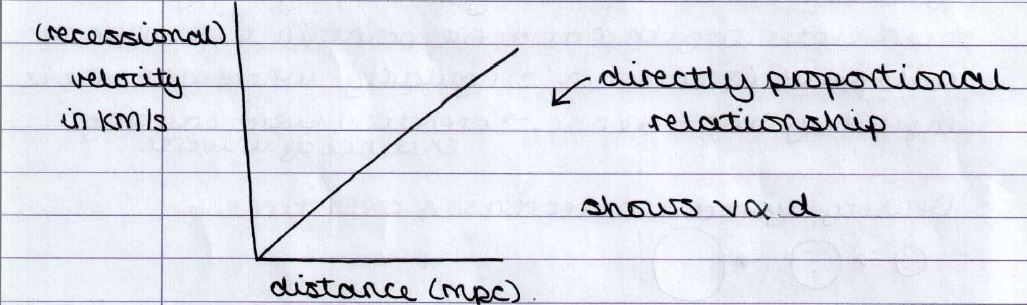 (recessional)
velocity
in km/s
directly proportional
relationship
shows v∝ d
distance (mpc).